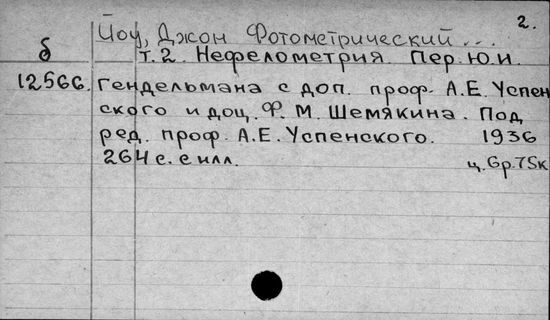 2.
Йоу, Джон Фотометрический ...
б т.2. Нефелометрия. Пер. Ю.И.
12566. Гендельмана с доп. проф. А.Е. Успен
ского и доц. Ф. М. Шемякина. Под
ред. проф. А.Е. Успенского. 1936
264 с. с илл. ц. 6р.75к